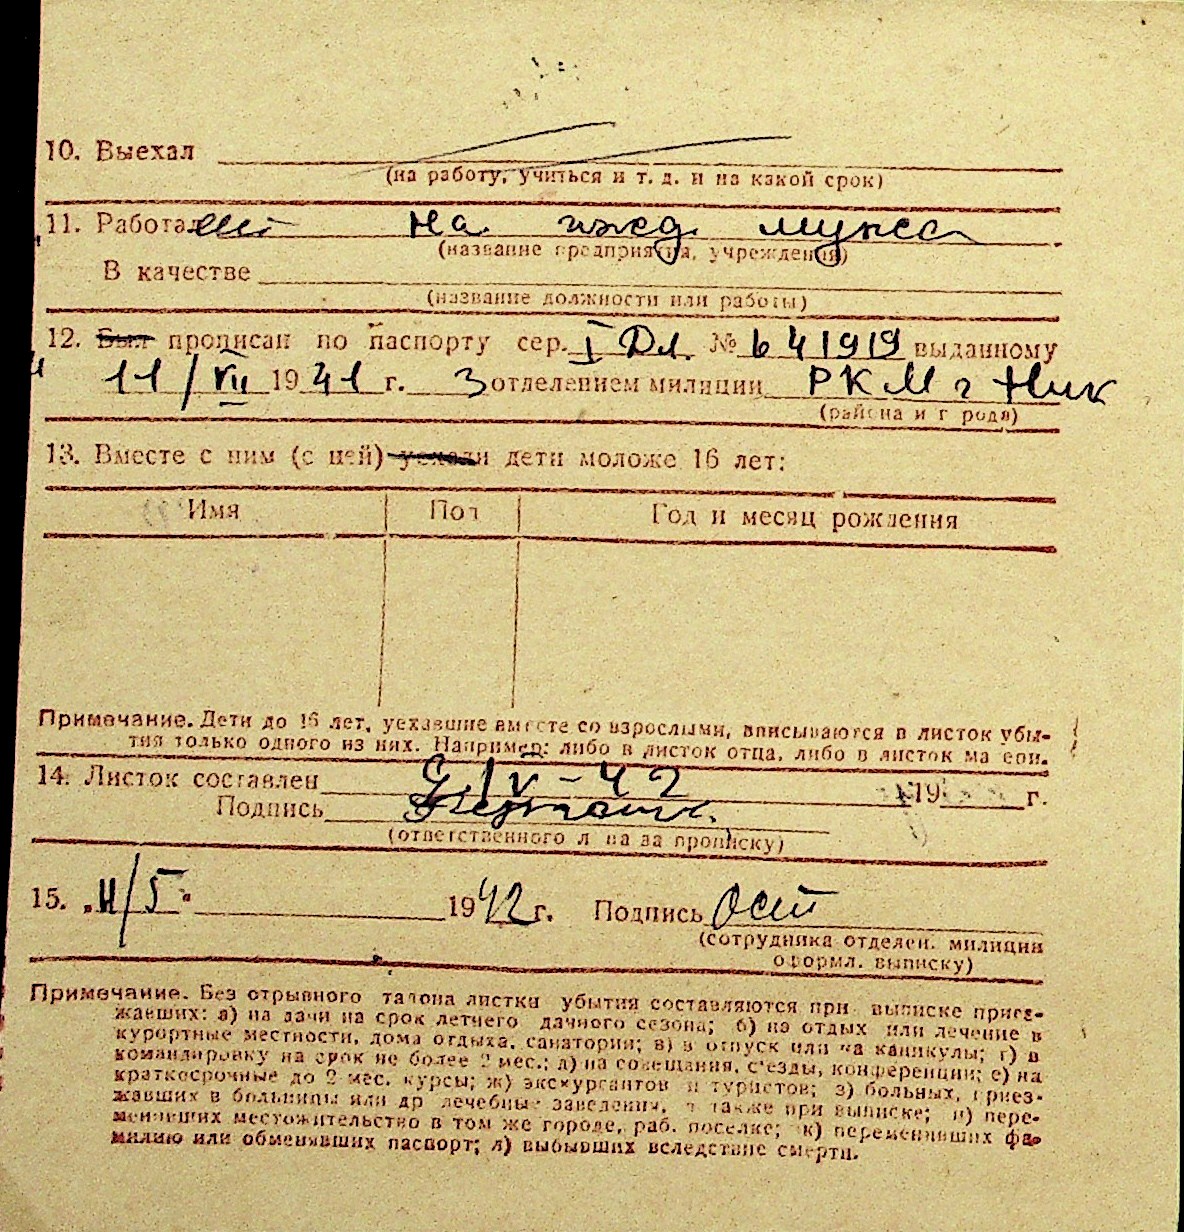 10. Выехал
(на работу, учиться и т. д. и на какой срок)
11. Работает на ижд. мужа
(название предприятия, учреждения)
В качестве
(название должности или работы)
12. Был прописан по паспорту сер. I Дл. № 641919 выданному
11/VII 1941 г. 3 отделением милиции РКМ г Ник
(района и города)
13. Вместе с ним (с ней) уехали дети моложе 16 лет:
Имя Пол Год и месяц рождения
Примечание. Дети до 16 лет, уехавшие вместе со взрослыми, вписываются в листок убы-
тия только одного из них. Например: либо в листок отца, либо в листок матери.
14. Листок составлен IV-42 19 г.
Подпись
(ответственного лица за прописку)
15. „11/5" 1942 г. Подпись
(сотрудника отделен. милиции
оформл. выписку)
Примечание. Без отрывного талона листки убытия составляются при выписке приез-
жавших: а) на дачи на срок летнего дачного сезона; б) на отдых или лечение в
курортные местности, дома отдыха, санатории; в) в отпуск или на каникулы; г) в
командировку на срок не более 2 мес.; д) на совещания, съезды, конференции; е) на
краткосрочные до 2 мес. курсы; ж) экскурсантов и туристов; з) больных, приез-
жавших в больницы или др лечебные заведения, а также при выписке; и) пере-
менивших местожительство в том же городе, раб. поселке; к) переменивших фа-
милию или обменявших паспорт; л) выбывших вследствие смерти.